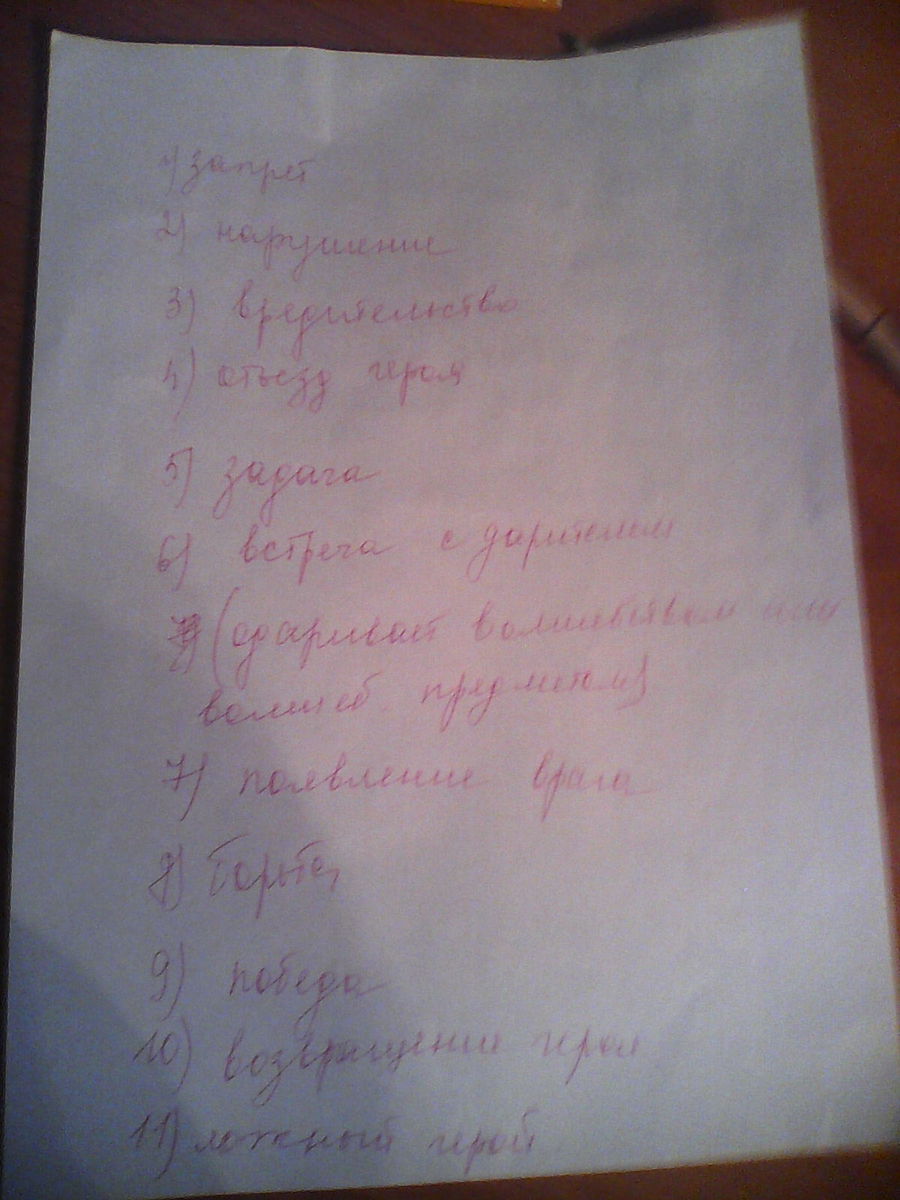 1) запрет
2) нарушение
3) вредительство
4) отъезд героя
5) задача
6) встреча с дарителем
(одаривает волшебством или
волшеб. предметом)
7) появление врага
8) борьба
9) победа
10) возвращение героя
11) ложный герой